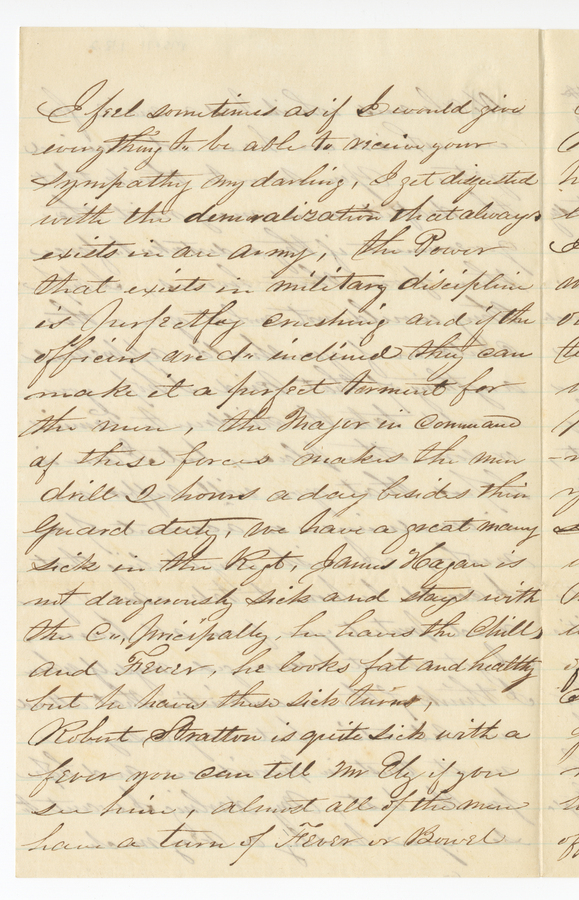 I feel sometimes as if I would give
everything to be able to recieve your
sympathy my darling, I get disgusted
with the demoralization that always
exists in an army, the Power
that exists in military discipline
is perfectly crushing and if the
officers are so inclined they can
make it a perfect torment for
the men, the Major in command
of these forces makes the men
drill 2 hours a day besides their
guard duty, we have a great many
sick in the Regt, James Hagan is
not dangerously sick and stays with
the Co, principally, he haves the Chills
and Fever, he looks fat and healthy
but he haves these sick turns,
Robert Stratton is quite sick with a
fever you can tell Mr Ely if you
see him, almost all of the men
have a turn of Fever or Bowel